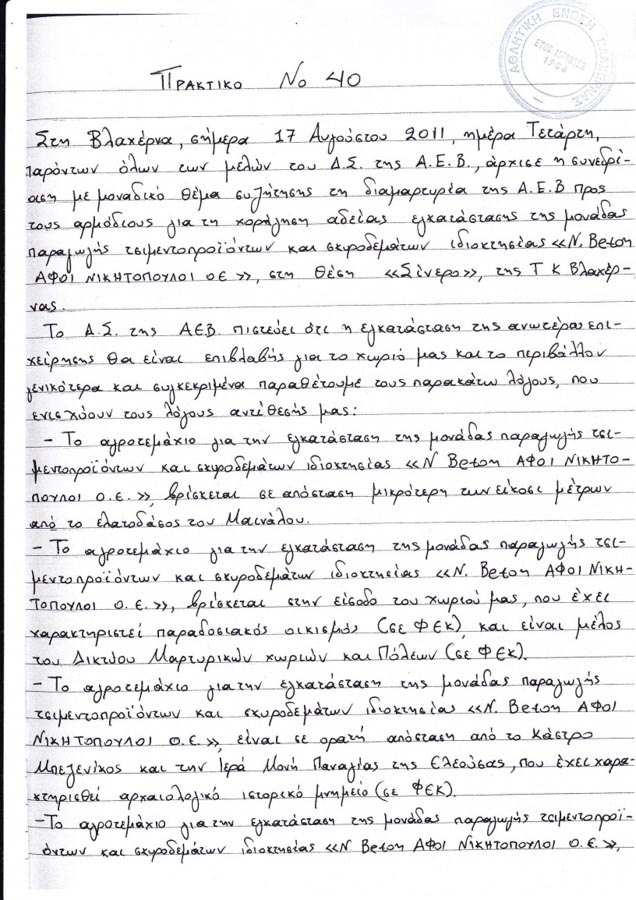 ΑΘΛΗΤΙΚΗ ΕΝΩΣΗ ΒΛΑΧΕΡΝΑΣ
ΕΤΟΣ ΙΔΡΥΣΕΩΣ
ΠΡΑΚΤΙΚΟ Νο 40
Στη Βλαχέρνα, σήμερα 17 Αυγούστου 2011, ημέρα Τετάρτη,
παρόντων όλων των μελών του Δ.Σ. της Α.Ε.Β., άρχισε η συνεδρί-
αση με μοναδικό θέμα συζήτησης τη διαμαρτυρία της Α.Ε.Β προς
τους αρμόδιους για τη χορήγηση αδείας εγκατάστασης της μονάδας
παραγωγής τσιμεντοπροϊόντων και σκυροδεμάτων ιδιοκτησίας «Ν. Beton
ΑΦΟΙ ΝΙΚΗΤΟΠΟΥΛΟΙ ΟΕ», στη θέση «Σίνερο», της Τ Κ Βλαχέρ-
νας.
Το Δ.Σ. της ΑΕΒ. πιστεύει ότι η εγκατάσταση της ανωτέρω επι-
χείρησης θα είναι επιβλαβής για το χωριό μας και το περιβάλλον
γενικότερα και συγκεκριμένα παραθέτουμε τους παρακάτω λόγους, που
ενισχύουν τους λόγους αντίθεσής μας:
- Το αγροτεμάχιο για την εγκατάσταση της μονάδας παραγωγής τσι-
μεντοπροϊόντων και σκυροδεμάτων ιδιοκτησίας «Ν Beton ΑΦΟΙ ΝΙΚΗΤΟ-
ΠΟΥΛΟΙ Ο.Ε.», βρίσκεται σε απόσταση μικρότερη των είκοσι μέτρων
από το ελατοδάσος του Μαινάλου.
- Το αγροτεμάχιο για την εγκατάσταση της μονάδας παραγωγής τσι-
μεντοπροϊόντων και σκυροδεμάτων ιδιοκτησίας «Ν. Beton ΑΦΟΙ ΝΙΚΗ-
ΤΟΠΟΥΛΟΙ Ο.Ε.», βρίσκεται στην είσοδο του χωριού μας, που έχει
χαρακτηριστεί παραδοσιακός οικισμός (σε ΦΕΚ), και είναι μέλος
του Δικτύου Μαρτυρικών χωριών και Πόλεων (σε ΦΕΚ).
- Το αγροτεμάχιο για την εγκατάσταση της μονάδας παραγωγής
τσιμεντοπροϊόντων και σκυροδεμάτων ιδιοκτησίας «Ν. Beton ΑΦΟΙ
ΝΙΚΗΤΟΠΟΥΛΟΙ Ο.Ε», είναι σε ορατή απόσταση από το Κάστρο
Μπεζενίκος και την Ιερά Μονή Παναγίας της Ελεούσας, που έχει χαρα-
κτηρισθεί αρχαιολογικό ιστορικό μνημείο (σε ΦΕΚ).
- Το αγροτεμάχιο για την εγκατάσταση της μονάδας παραγωγής τσιμεντοπροϊ-
όντων και σκυροδεμάτων ιδιοκτησίας «Ν. Beton ΑΦΟΙ ΝΙΚΗΤΟΠΟΥΛΟΙ Ο.Ε.»,